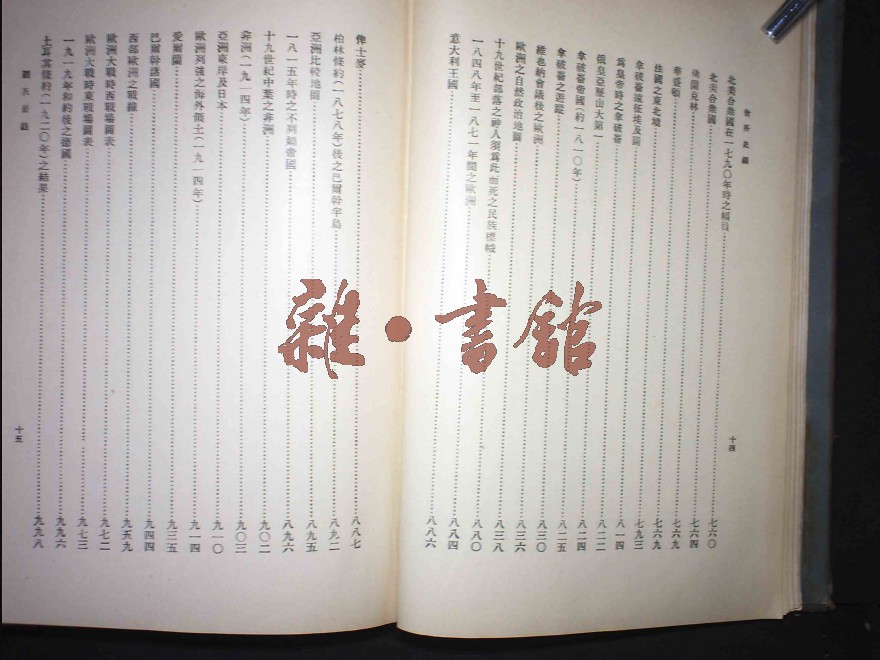 世界史綱
北美合衆國在一七九〇年時之幅員
北美合衆國……七六〇
佛蘭克林……七六四
華盛頓……七六九
法國之東北境……七六九
拿破崙遠征埃及圖……七九三
為皇帝時之拿破崙……八一四
俄皇亞歷山大第一……八二二
拿破崙帝國(約一八一〇年)……八二四
拿破崙之遊蹤……八二五
維也納會議後之歐洲……八三〇
歐洲之自然政治地圖……八三六
十九世紀部落之神人須為此而死之民族標幟……八三八
一八四八年至一八七一年間之歐洲……八八〇
意大利王國……八八四
……八八六
十四
俾士麥……八八七
柏林條約(一八七八年)後之巴爾幹半島……八九二
亞洲比較地圖……八九五
一八一五年時之不列顛帝國……八九六
十九世紀中葉之非洲……九〇二
非洲(一九一四年)……九〇三
亞洲東岸及日本……九一〇
歐洲列強之海外領土(一九一四年)……九一四
愛爾蘭……九三五
巴爾幹諸國……九四四
西部歐洲之戰線……九五九
歐洲大戰時西戰場圖表……九七二
歐洲大戰時東戰場圖表……九七三
一九一九年和約後之德國……九九六
土耳其條約(一九二〇年)之結果……九九八
圖表目錄
十五
雜·書館